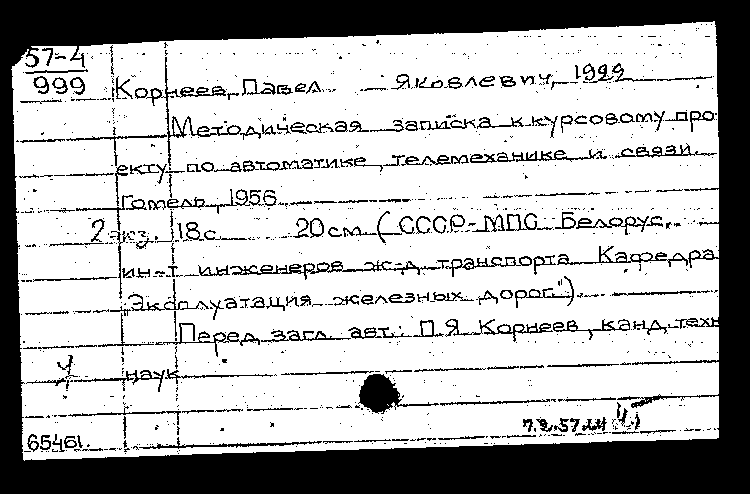 57-4
999
Корнеев, Павел Яковлевич, 1929
Методическая записка к курсовому про-
екту по автоматике, телемеханике и связи.
Гомель, 1956
2 экз. 18с 20см (СССР-МПС Белорус.
ин-т инженеров ж-д транспорта Кафедра
"Эксплуатация железных дорог").
Перед загл. авт.: П.Я Корнеев, канд. техн
наук
65461.